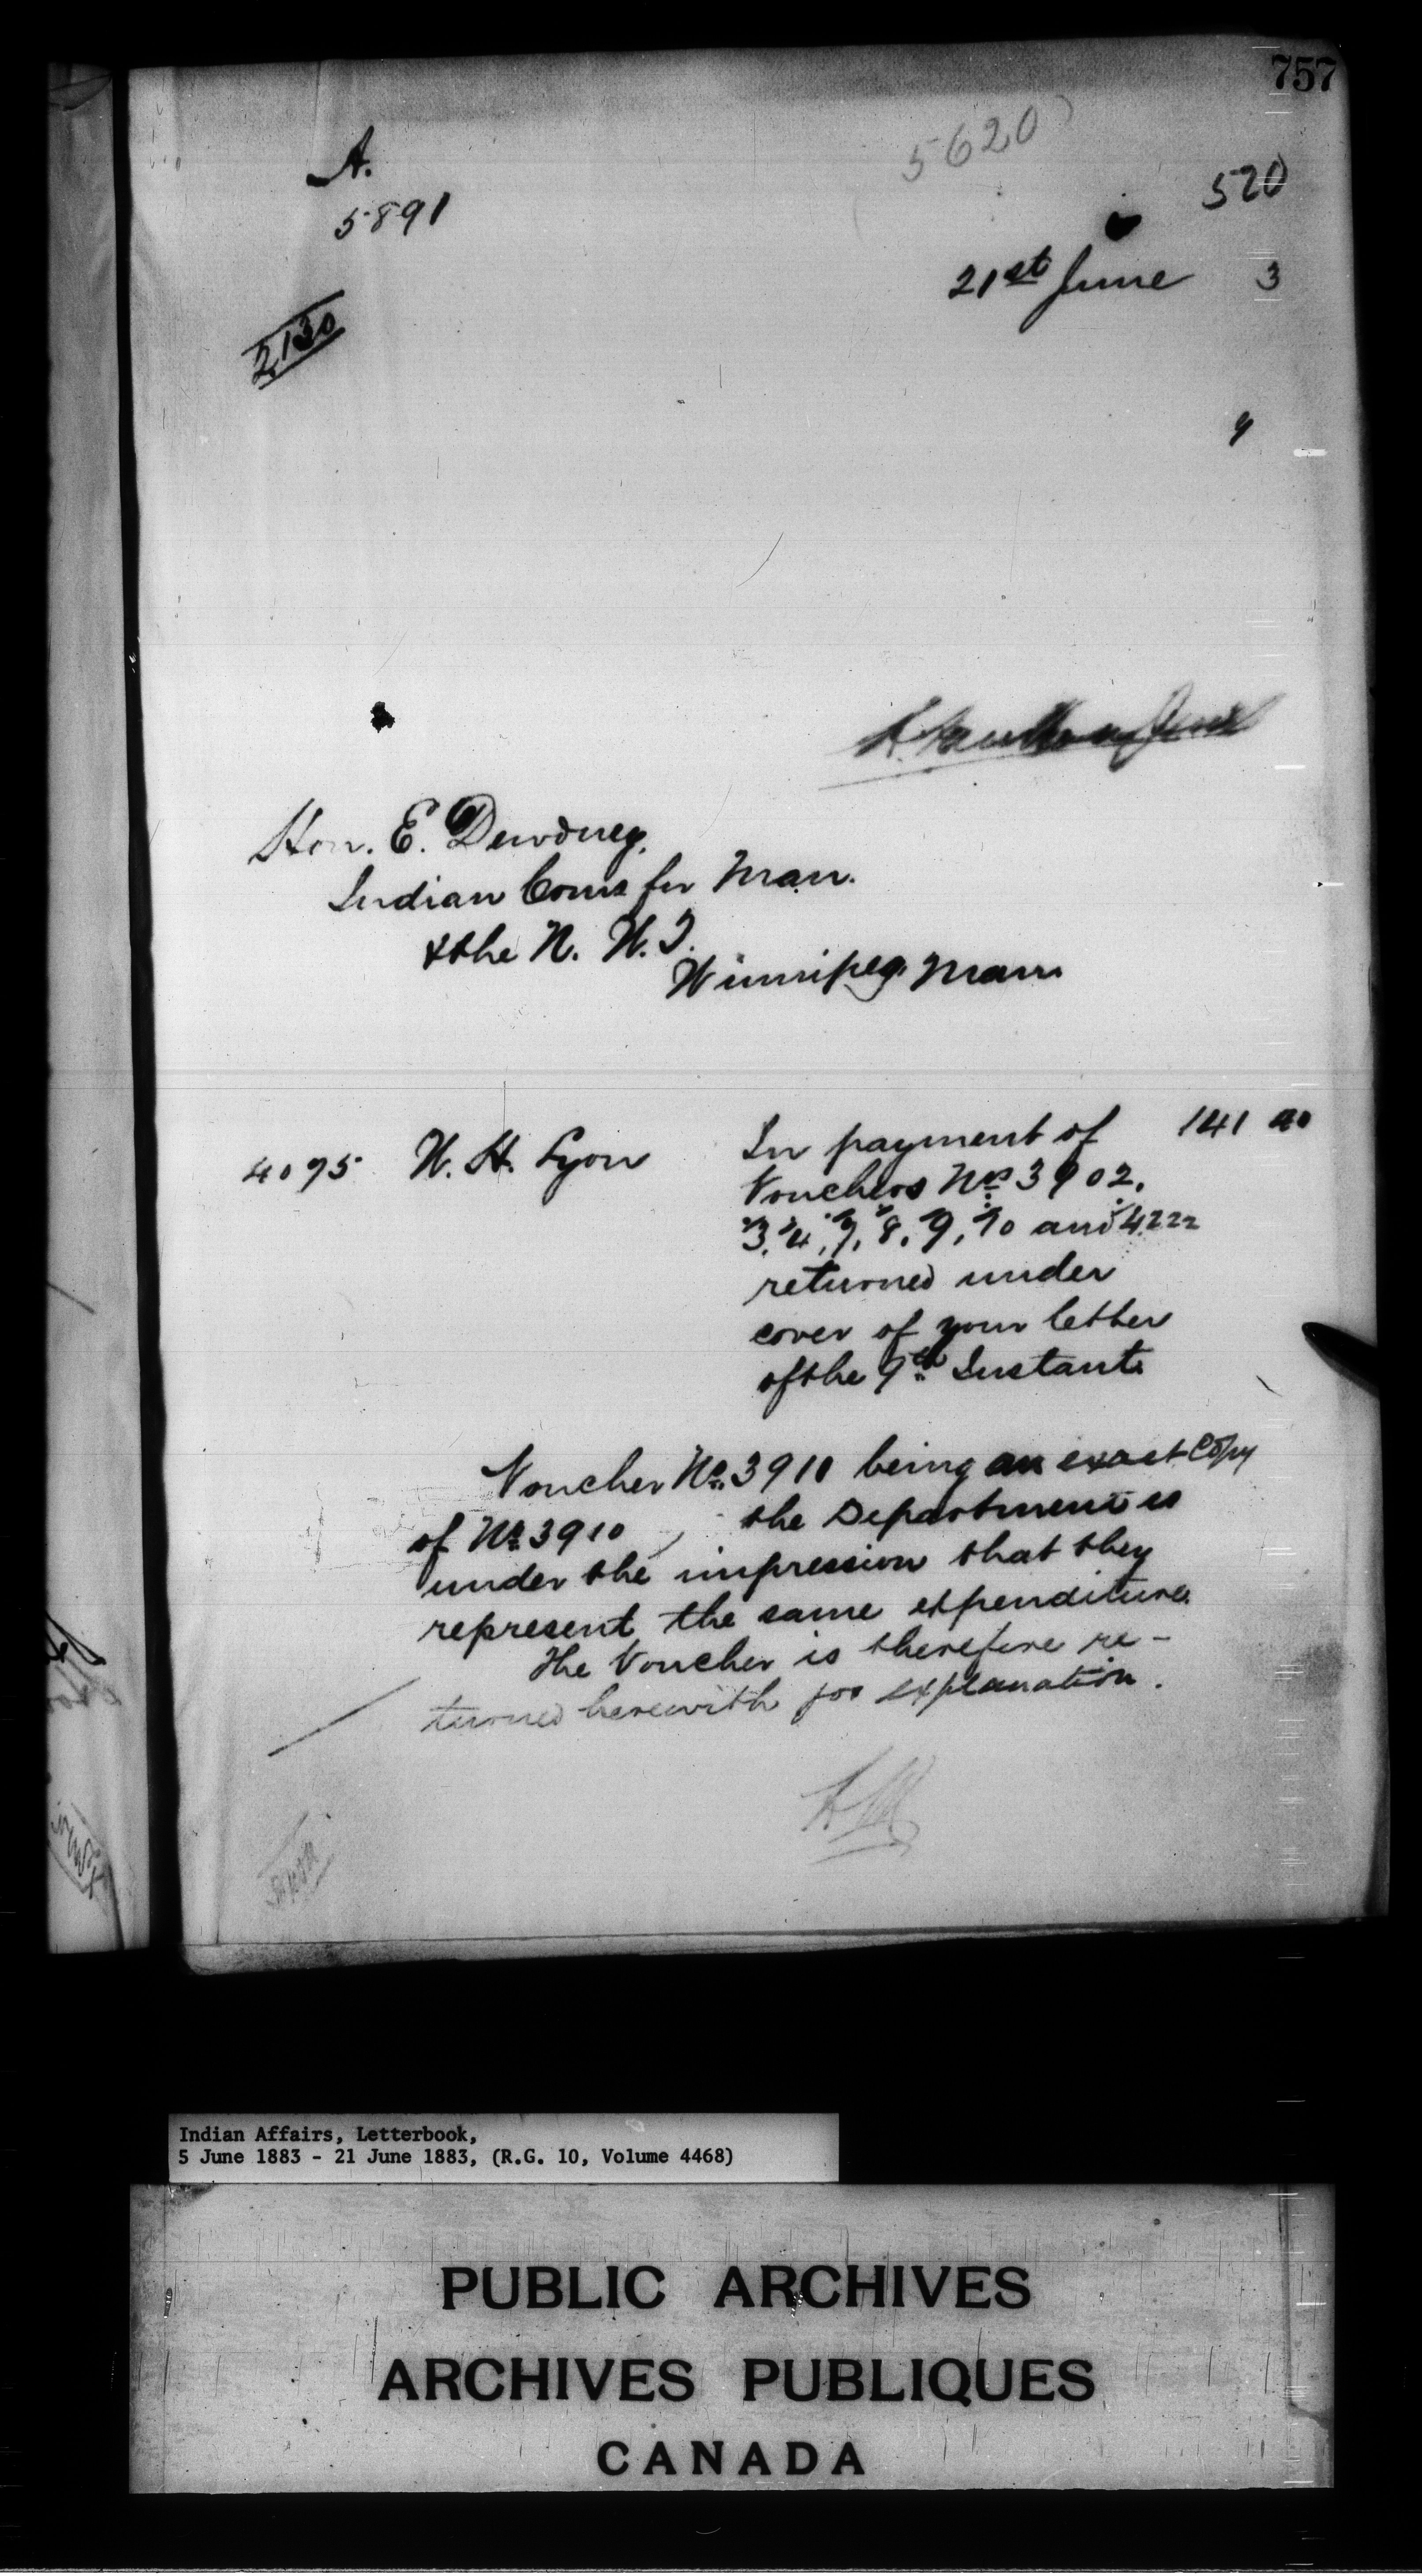 757
5620
A.
5891
520
21st June 3
2130
Hon. E. Dewdney,
Indian Coms for Man.
& the N. W. T.
Winnipeg. Man.
4095 W. H. Lyon In payment of 141 40
Vouchers Nos 3902,
3, 4, 7, 8, 9, 10 and 4222
returned under
cover of your letter
of the 9th Instant.
Voucher No. 3911 being an exact copy
of No. 3910, the Department is
under the impression that they
represent the same expenditure.
The Voucher is therefore re-
turned herewith for explanation.
Indian Affairs, Letterbook,
5 June 1883 - 21 June 1883, (R.G. 10, Volume 4468)
PUBLIC ARCHIVES
ARCHIVES PUBLIQUES
CANADA